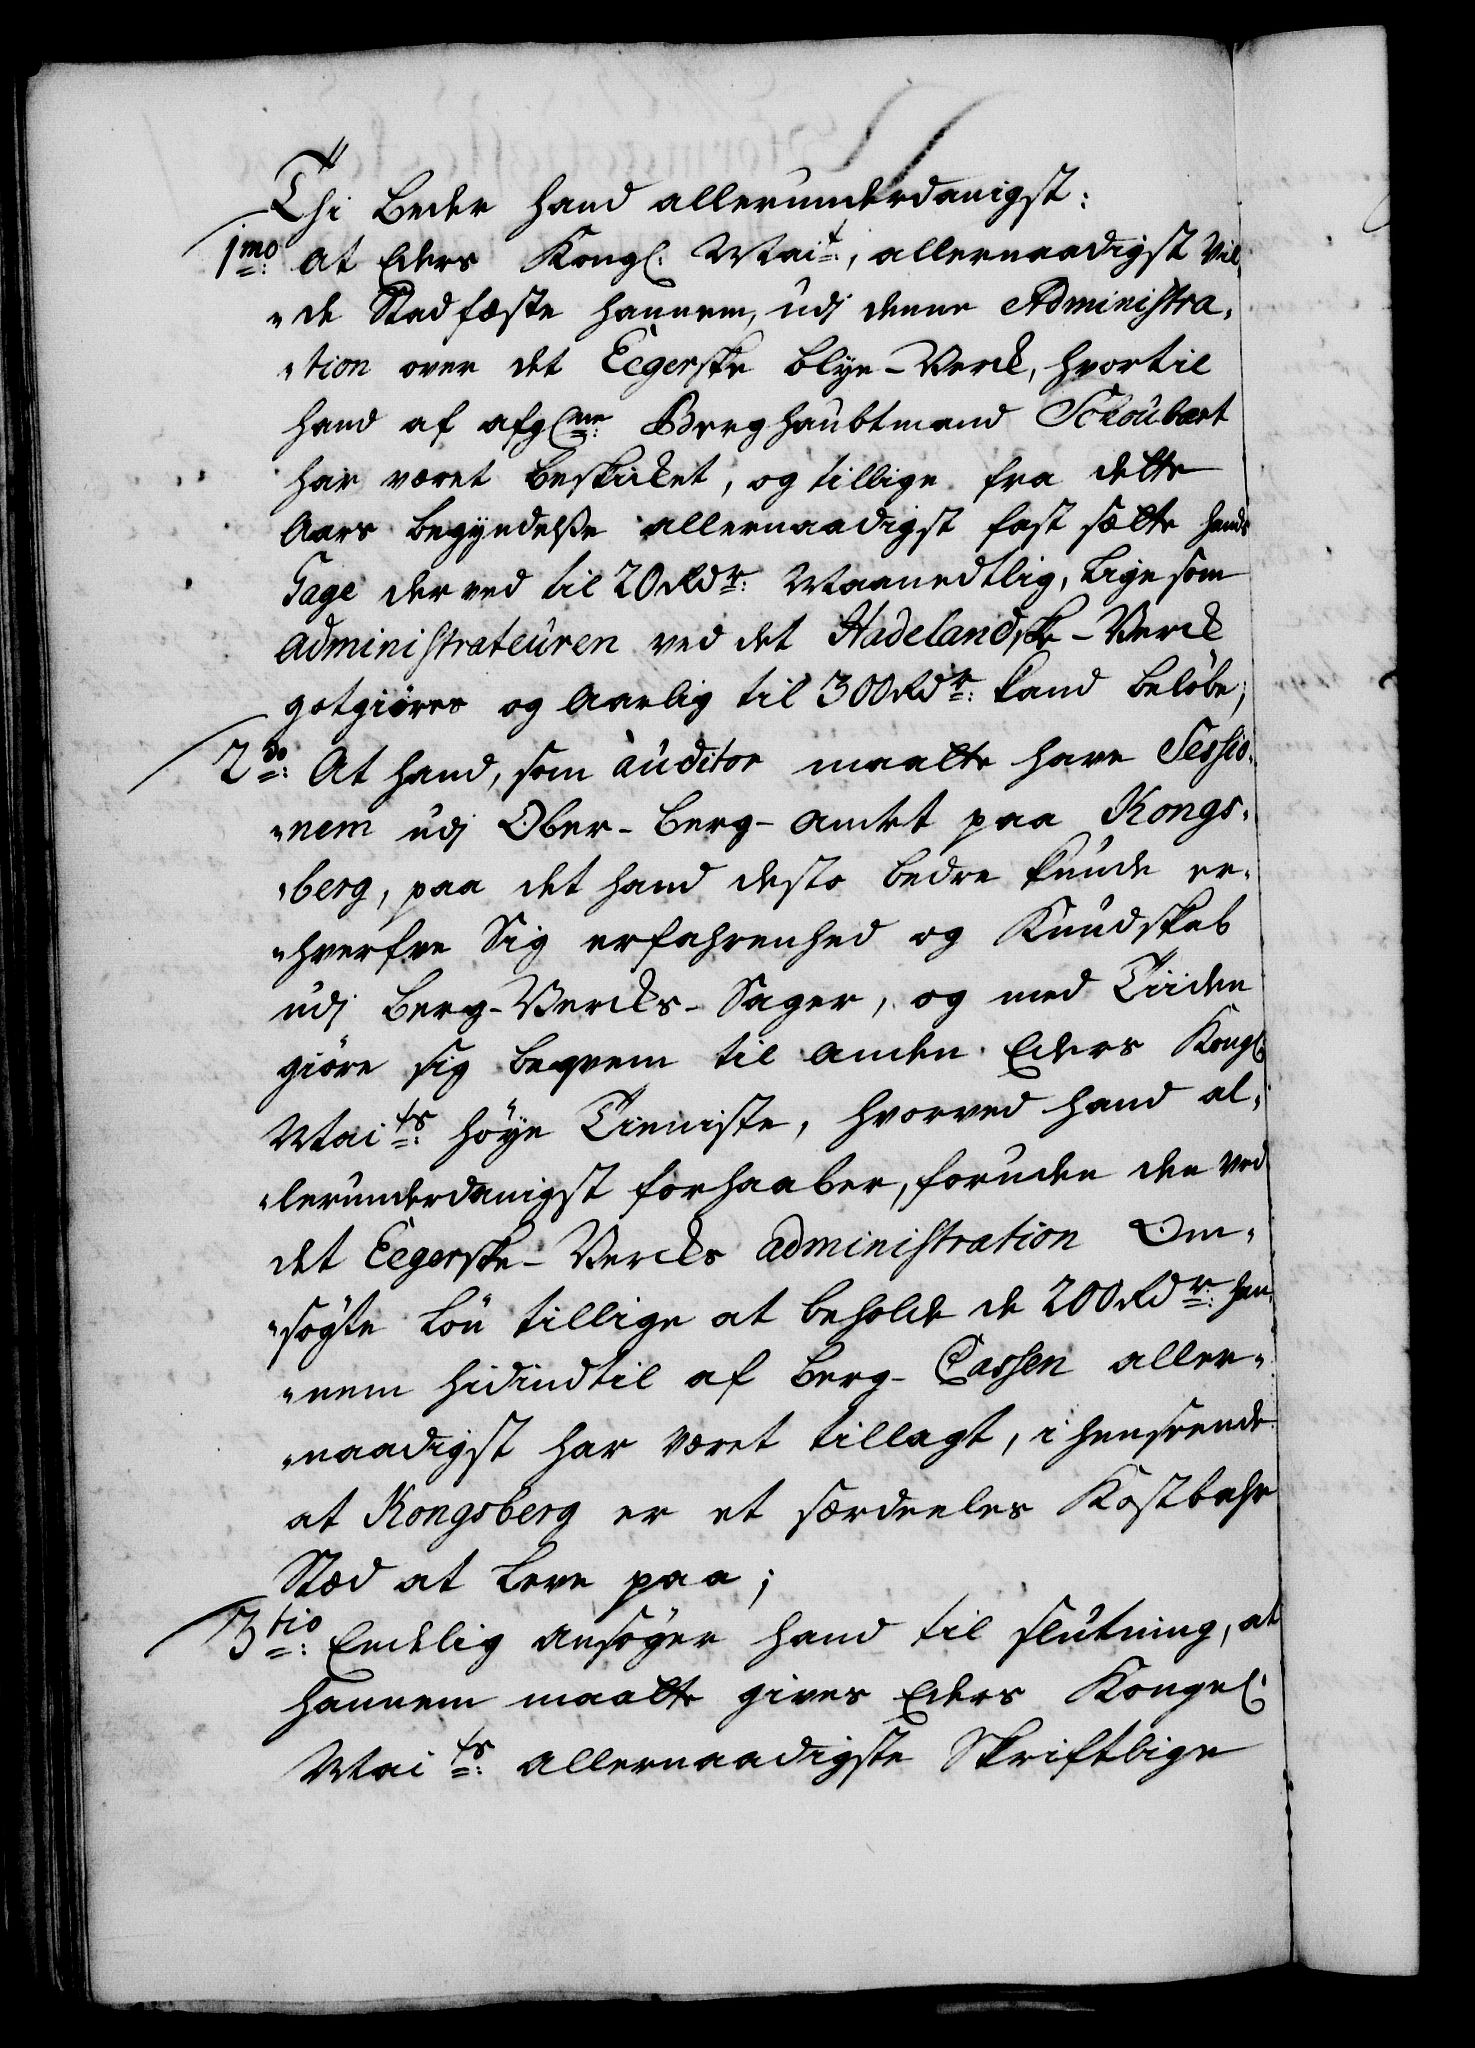 Thi beder hand allerunderdanigst:
1mo: at Eders Kongl: Mait:, allernaadigst vil¬
"de Stadfæste hannem, udj denne Administra¬
"tion over det Eegerske blye-Verck, hvortil
hand af afgl:ne: Berghaubtmand Schoubart
har været beskicket, og tillige fra dette
Aars begyndelse allernaadigst fast sætte hands
Gage derved til 20 Rdr: Maanedtlig, ligesom
Administrateuren ved det Hadelandske-Verck
gotgiøres og Aarlig til 300 Rdr: kand beløbe;
2do: At hand, som auditor maatte have Sessio¬
"nem udj Ober-Berg-Amtet paa Kongs¬
"berg, paa det hand desto bedre kunde er¬
"hverfve Sig erfahrenhed og Kundskab
udj Berg-Vercks-Sager, og med Tiiden
giøre sig beqvem til anden Eders Kongl:
Maits: høye Tieniste, hvorved hand al¬
"lerunderdanigst forhaaber, foruden den ved
det Eegerske-Vercks administration Om¬
"søgte Løn tillige at beholde de 200 Rdr: han¬
"nem hidindtil af Berg-Cassen aller¬
"naadigst har været tillagt, i henseende
at Kongsberg er et særdeeles Kostbahr
Stæd at leve paa;
3tio: Endelig ansøger hand til slutning, at
hannem maatte gives Eders Kongel:
Maits: allernaadigste Skriftlige